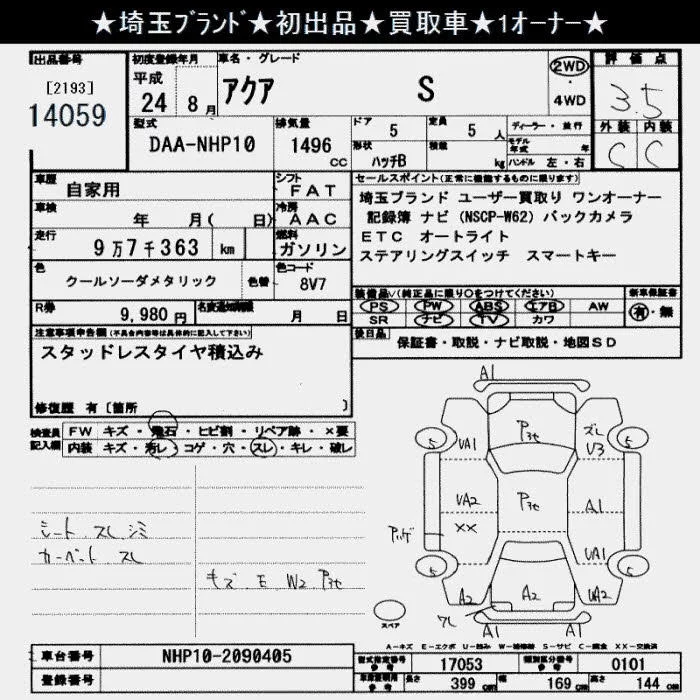 ★埼玉ﾌﾞﾗﾝﾄﾞ★初出品★買取車★1オーナー★
出品番号
[2193]
14059
初度登録年月
平成
24 8月
車名・グレード
アクア S
2WD
・
4WD
評価点
3.5
外装 内装
C C
型式
DAA-NHP10
排気量
1496 cc
ドア
5
定員
5 人
形状
ハッチB
積載
kg
ディーラー・並行
モデル年式 年
ハンドル 左・右
車歴
自家用
シフト
FAT
車検
年 月( 日)
冷房
AAC
走行
9万7千363 km
燃料
ガソリン
色
クールソーダメタリック
色替
色コード
8V7
R券
9,980円
名変通知期限
月 日
セールスポイント(正常に機能するものに限ります)
埼玉ブランド ユーザー買取り ワンオーナー
記録簿 ナビ(NSCP-W62)バックカメラ
ETC オートライト
ステアリングスイッチ スマートキー
装備品∨(純正品に限り○をつけてください)
PS PW ABS エアB AW
SR ナビ TV カワ
新車保証書
有・無
後日品
保証書・取説・ナビ取説・地図SD
注意事項申告欄(不具合内容等は具体的に記入して下さい)
スタッドレスタイヤ積込み
修復歴 有[箇所 ]
検査員記入欄
FW キズ・飛石・ヒビ割・リペア跡・×要
内装 キズ・汚レ・コゲ・穴・スレ・キレ・破レ
シート スレ シミ
カーペット スレ
キズ E W2 Pヌセ
A1
5
UA1
Pヌセ
ズレ
U3
5
UA2
××
Pヌセ
A1
UA1
5
5
A2
A2
UA2
ワレ
A1
A1
スペア
A-キズ E-エクボ U-凹み W-補修跡 S-サビ C-腐食 XX-交換済
車台番号
NHP10-2090405
登録番号
型式指定番号
参考
17053
類別区分番号
参考
0101
車庫証明用
参考
長さ
399 cm
幅
169 cm
高さ
144 cm